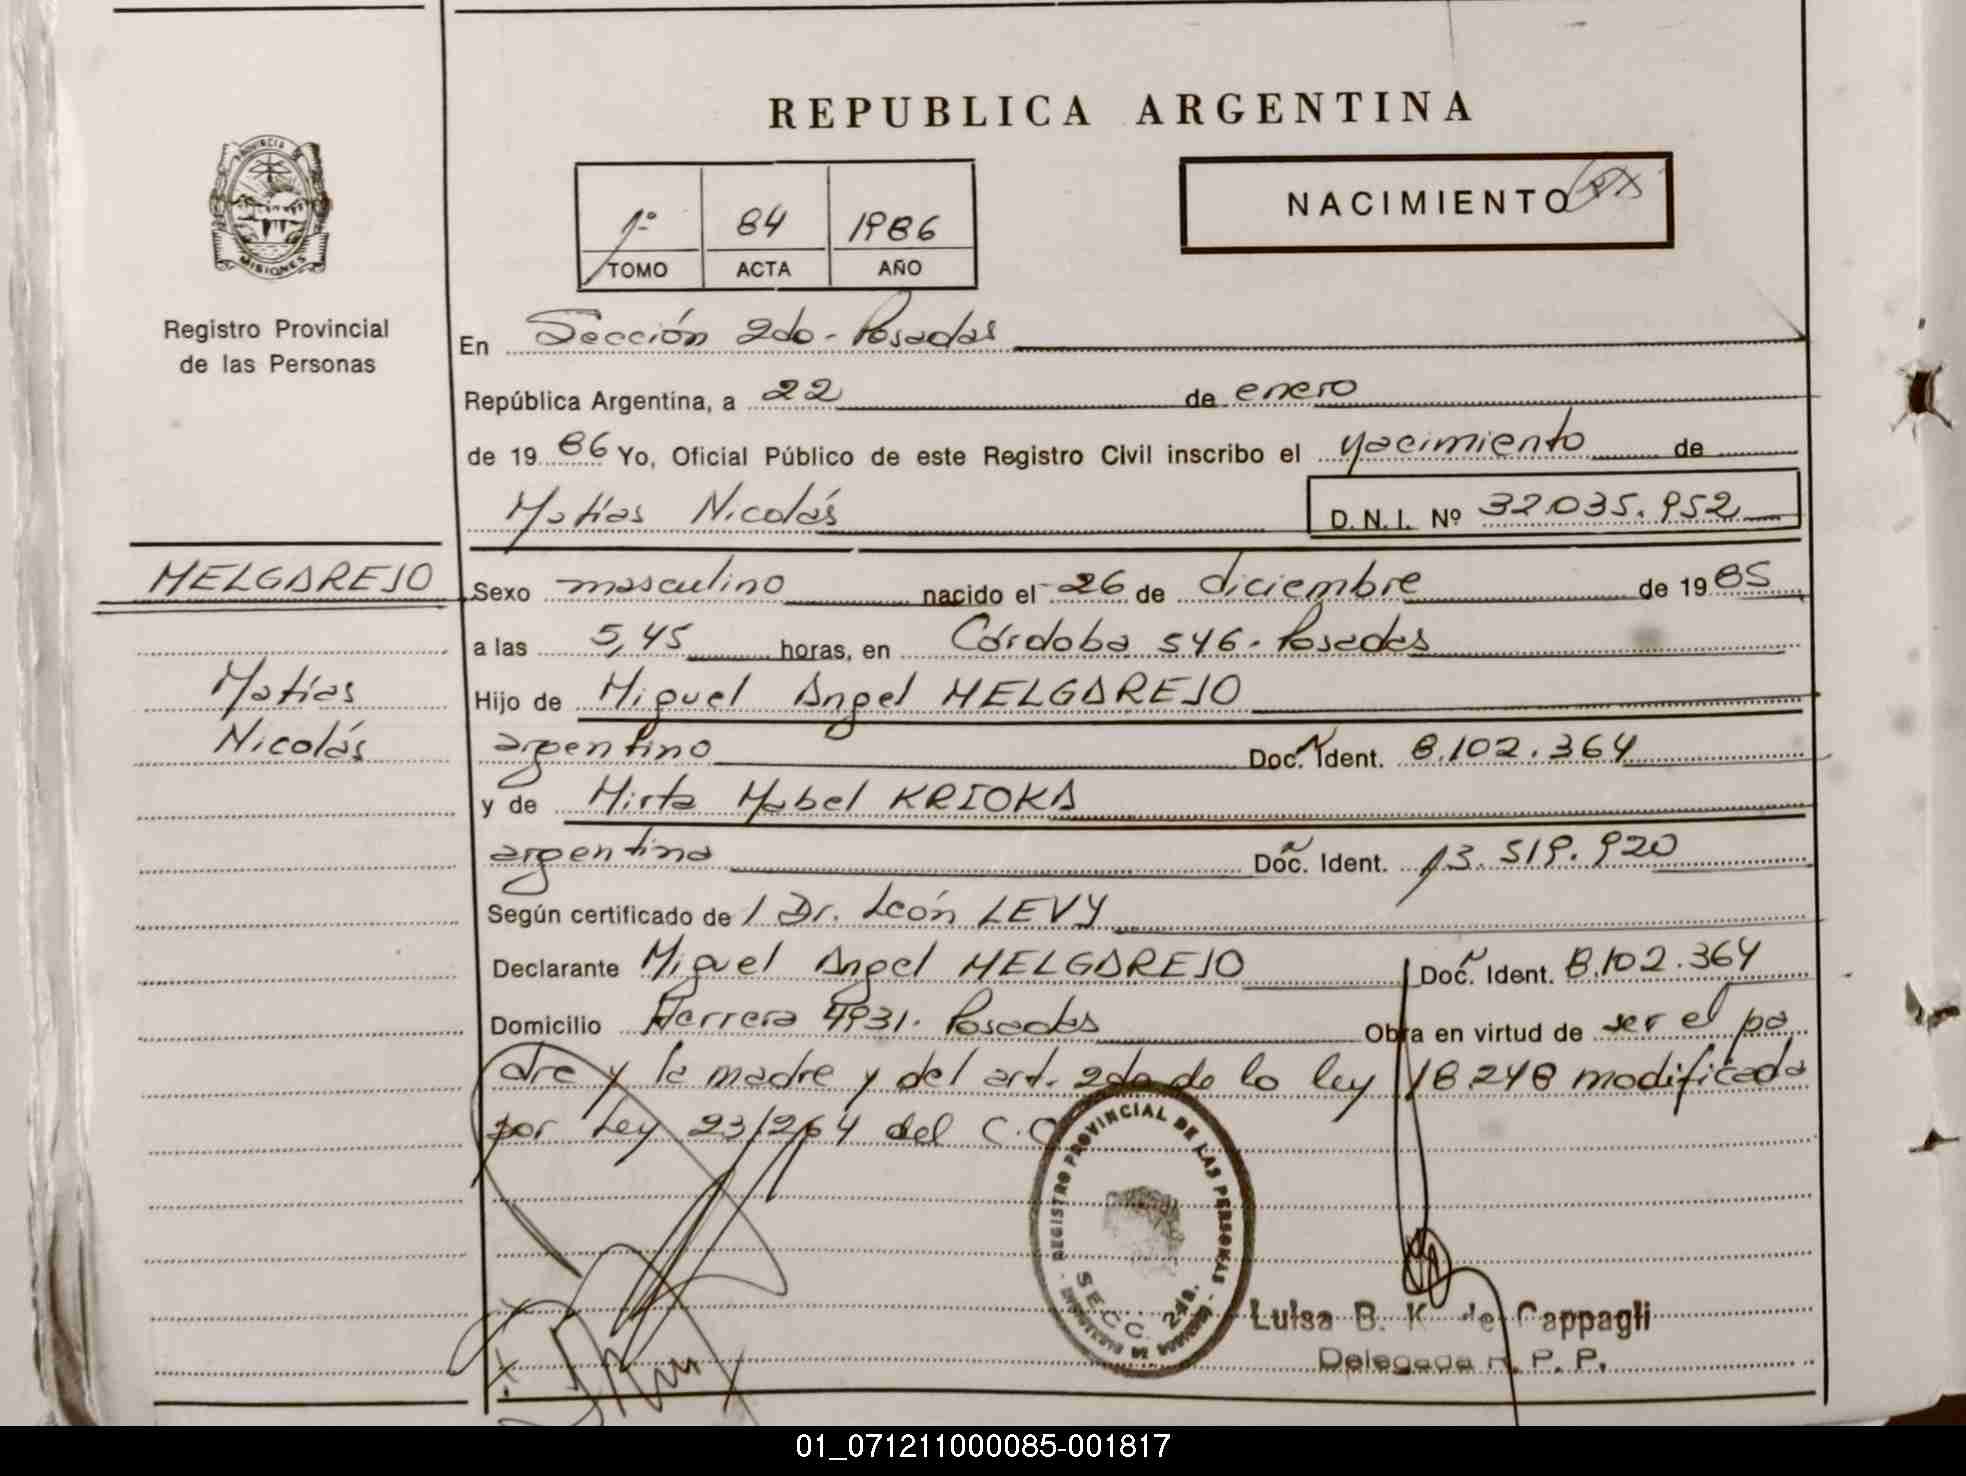 REPUBLICA ARGENTINA
PROVINCIA DE
MISIONES
Registro Provincial
de las Personas
NACIMIENTO
1º 84 1986
TOMO ACTA AÑO
En Sección 2da - Posadas
República Argentina, a 22 de enero
de 19 86 Yo, Oficial Público de este Registro Civil inscribo el nacimiento de
Matías Nicolás D.N.I. Nº 32.035.952
MELGAREJO
Matías
Nicolás
Sexo masculino nacido el 26 de diciembre de 19 85
a las 5,45 horas, en Córdoba 546 - Posadas
Hijo de Miguel Angel MELGAREJO
argentino Doc. Ident. 8.102.364
y de Mirta Mabel KRIOKA
argentina Doc. Ident. 13.519.920
Según certificado de / Dr. León LEVY
Declarante Miguel Angel MELGAREJO Doc. Ident. 8.102.364
Domicilio Herrera 4931. Posadas Obra en virtud de ser el pa
dre y la madre y del art. 2do de la ley 18.248 modificada
por Ley 23/264 del C.C
REGISTRO PROVINCIAL DE LAS PERSONAS
SECC. 2da.
Luisa B. K. de Cappagli
Delegada R. P. P.
01_071211000085-001817